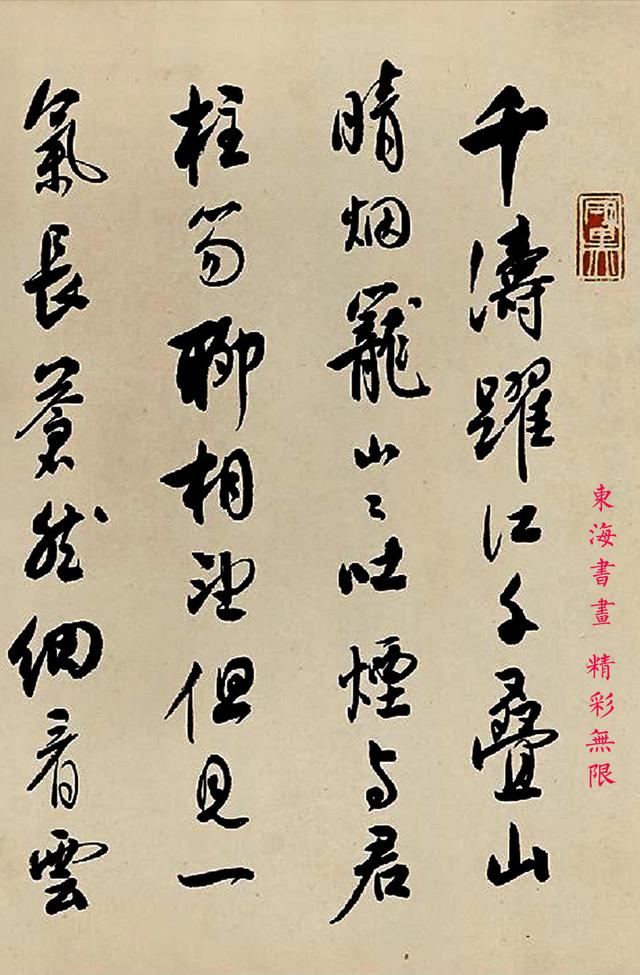 千濤躍江千疊山
晴烟籠山〻吐煙与君
柱笏聊相望但見一
氣長蒼然細看雲
東海書畫 精彩無限